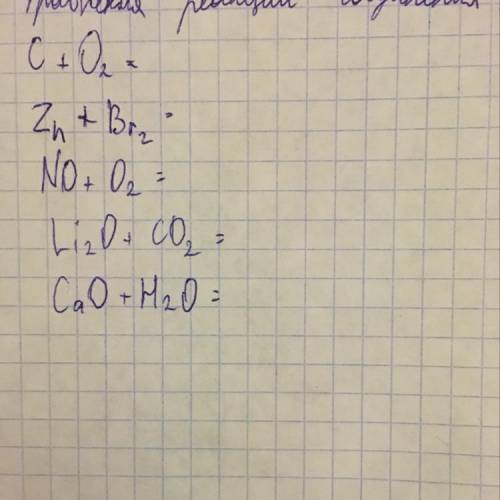 реакций соединения
C + O₂ =
Zn + Br₂ =
NO + O₂ =
Li₂O + CO₂ =
CaO + H₂O =